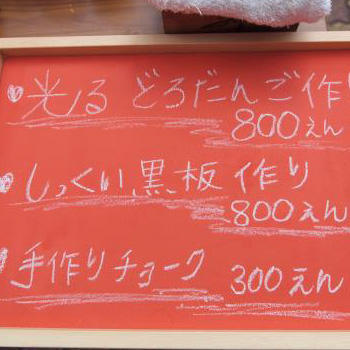 光る どろだんご作り
800えん
しっくい黒板 作り
800えん
手作りチョーク 300えん